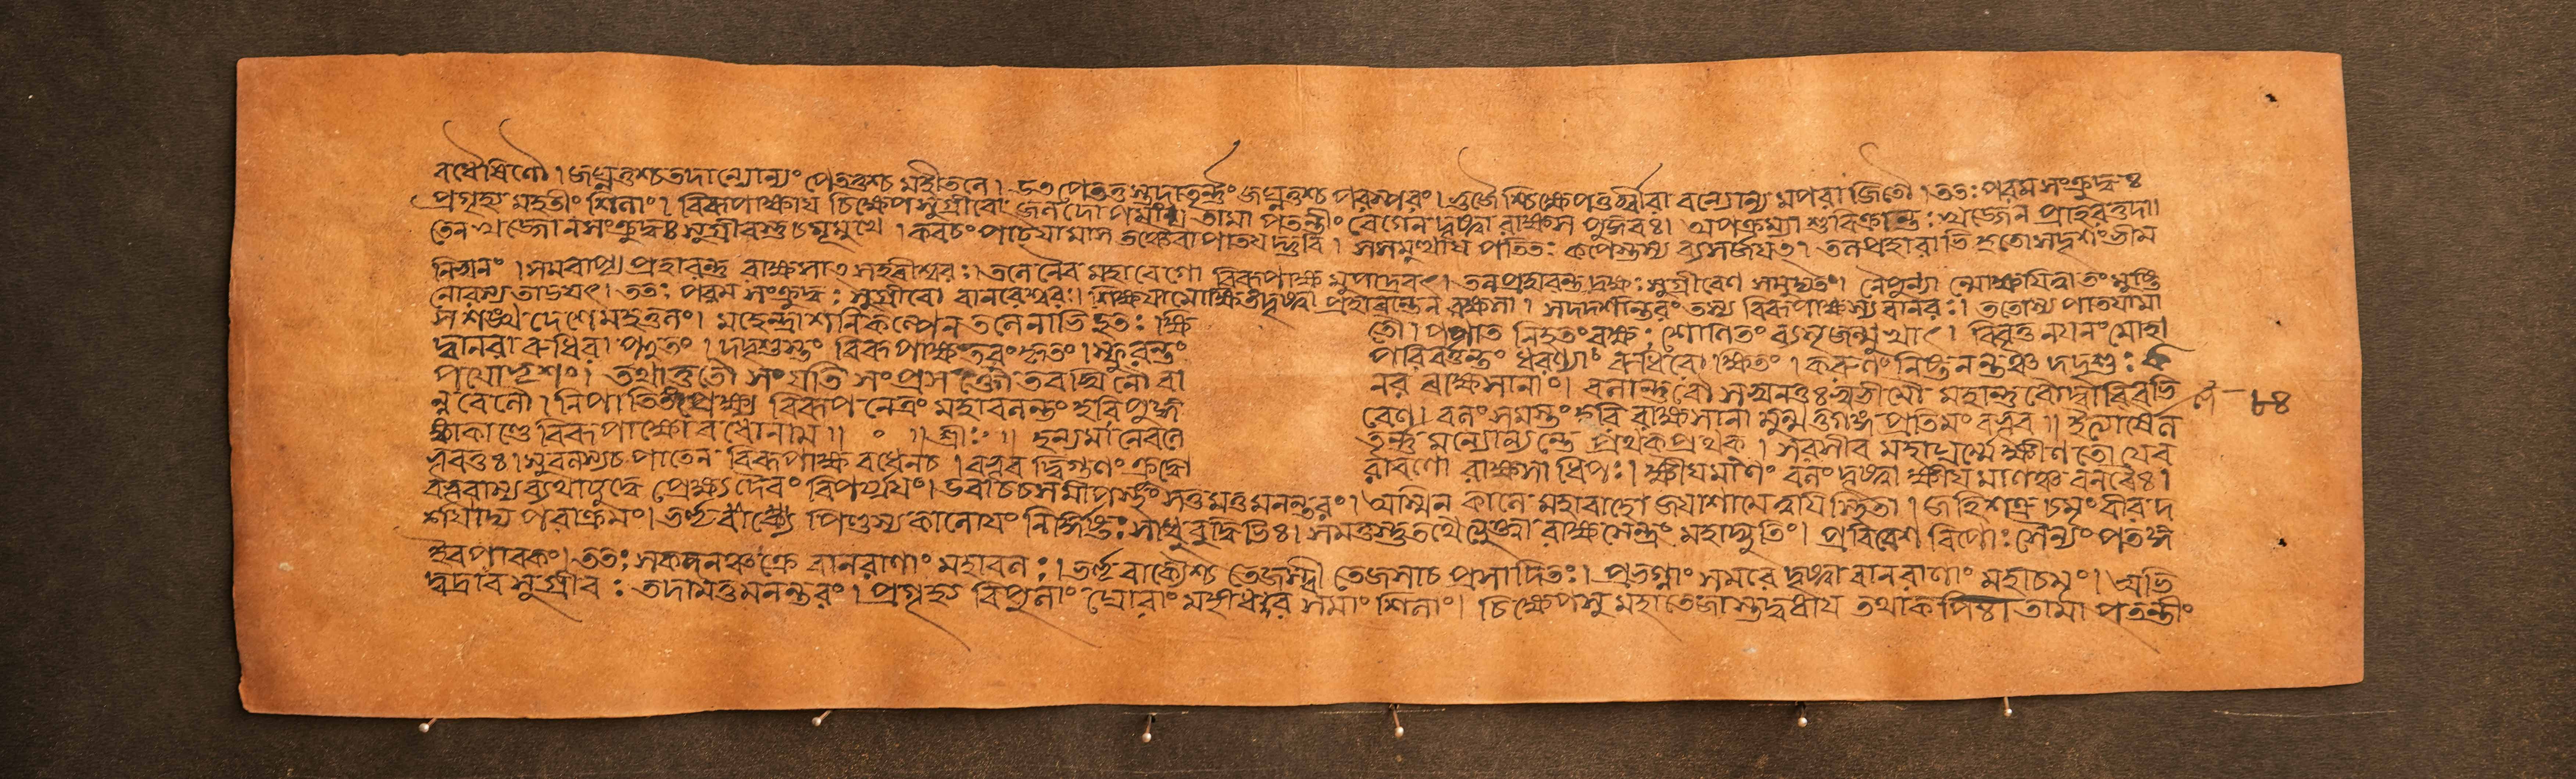 বধৈষিণৌ। জঘ্নতুশ্চ তদান্যোন্যং পেততুশ্চ মহীতলে। উত্পেততুস্তদাতূর্ন্নং জঘ্নতুশ্চ পরস্পরং। ভুজৈশ্চিক্ষেপতুর্ব্বীরা বন্যোন্যমপরাজিতৌ। ততঃ পরম সংক্রুদ্ধঃ
প্রগৃহ্য মহতীং শিলাং। বিরূপাক্ষায় চিক্ষেপ সুগ্রীবো জলদোপমাং। তামাপতন্তীং বেগেন দৃষ্ট্বা রাক্ষস পুঙ্গবঃ। অপক্রম্যাশু বিক্রান্তঃ খড্গেন প্রাহরত্তদা।
তেন খড্গেন সংক্রুদ্ধঃ সুগ্রীবস্য চমূমুখে। কবচং পাটয়ামাস পাতয়দ্ভুবি। স সমুত্থায় পতিতঃ কপিস্তস্য ব্যসর্জয়ৎ। তলপ্রহারা ভীম
নিস্বনং। সমবাপ্য প্রহারন্তু রাক্ষসাৎ স হরীশ্বরঃ। তলেনৈব মহাবেগো বিরূপাক্ষ মুপাদ্রবৎ। তলপ্রহারন্তদ্রক্ষঃ সুগ্রীবেণ সমুদ্যতং। নৈপুণ্যা ন্মোক্ষয়িত্বা তং মুষ্টি
নোরস্য তাডয়ৎ। ততঃ পরম সংক্রুদ্ধঃ সুগ্রীবো বানরেশ্বরঃ। মোক্ষিতং দৃষ্ট্বা প্রহারন্তেন রক্ষসা। স দদর্শান্তরং তস্য বিরূপাক্ষস্য বানরঃ। ততোন্য পাতয়ামা
স শঙ্খদেশে মহত্তলং। মহেন্দ্রাশনিকল্পেন তলেনাভিহতঃ ক্ষি তৌ। পপাত নিহতং রক্ষঃ শোণিতং ব্যসৃজন্মুখাৎ। বিবৃত্ত নয়নং মোহা
দ্বানরা রুধিরাপ্লুতং। দদৃশুস্তং বিরূপাক্ষং কৃতং। স্ফুরন্তং পরিবর্ত্তন্তং ধরণ্যাং রুধিরোক্ষিতং। করুণং নিস্তনন্তঞ্চ দদৃশুঃ ক
পয়োভৃশং। তথাতুতৌ সংযতি সংপ্রসক্তৌ তরস্বিনৌ বা নর রাক্ষসানাং। বলার্ন্নবৌ সস্বনতুঃ মহার্ন্নবৌ দ্বাবিবভি
ন্নবেলৌ। নিপাতিতং প্রেক্ষ্য বিরূপনেত্রং মহাবলন্তং হরিপুঙ্গ বেণ। বলং সমস্তং হরি রাক্ষসানা মুন্মত্তগঙ্গা প্রতিমং বভূব॥ ইত্যার্ষেল
ঙ্কাকাণ্ডে বিরূপাক্ষো বধোনাম॥ ০ ॥শ্রীঃ॥ হন্যমানেবলে তূর্ন্নমন্যোন্যন্তে প্রথকপ্রথক। সরসীব মহাঘর্ম্মে ক্ষীণতোয়েব
ভূবতুঃ। সুবলস্যচ পাতেন বিরূপাক্ষ বধেনচ। বভূব দ্বিগুণং ক্রুদ্ধো রাবণো রাক্ষসাধিপঃ। ক্ষীয়মাণং বলং দৃষ্ট্বা ক্ষীয়মাণঞ্চ বলবৈঃ।
বভূবাস্য ব্যথাযুদ্ধে প্রেক্ষ্য দৈবং বিপর্য্যয়ং। উবাচচ সমীপস্থং মত্ত মনন্তরং। অস্মিন কালে মহাবাহো জয়াশা মে ত্বয়ি স্থিতা। জহি শত্রু চমূং বীর দ
র্শয়াদ্য পরাক্রমং। ভর্ত্তৃ পিণ্ডস্য কালোয়ং নির্দ্দিষ্টঃ সাধু বুদ্ধিভিঃ। সমত্তস্তু তথেত্যুক্ত্বা রাক্ষসেন্দ্রং মহাদ্যুতিং। প্রবিবেশ রিপোঃ সৈন্যং পতঙ্গ
ইব পাবকং। ততঃ স কদনঞ্চক্রে বানরাণাং মহাবলঃ। ভর্ত্তৃ বাক্যৈশ্চ তেজস্বী তেজসাচ প্রসাদিতঃ। প্রভগ্নাং সমরে দৃষ্ট্বা বানরাণাং মহাচমূং। অভি
দুদ্রাব সুগ্রীবঃ তদামত্তমনন্তরং। প্রগৃহ্য বিপুলাং ঘোরাং মহীধর সমাং শিলাং। চিক্ষেপসু মহাতেজাস্তদ্বধায় তথাকপিঃ। তামা পতন্তীং
৮৪